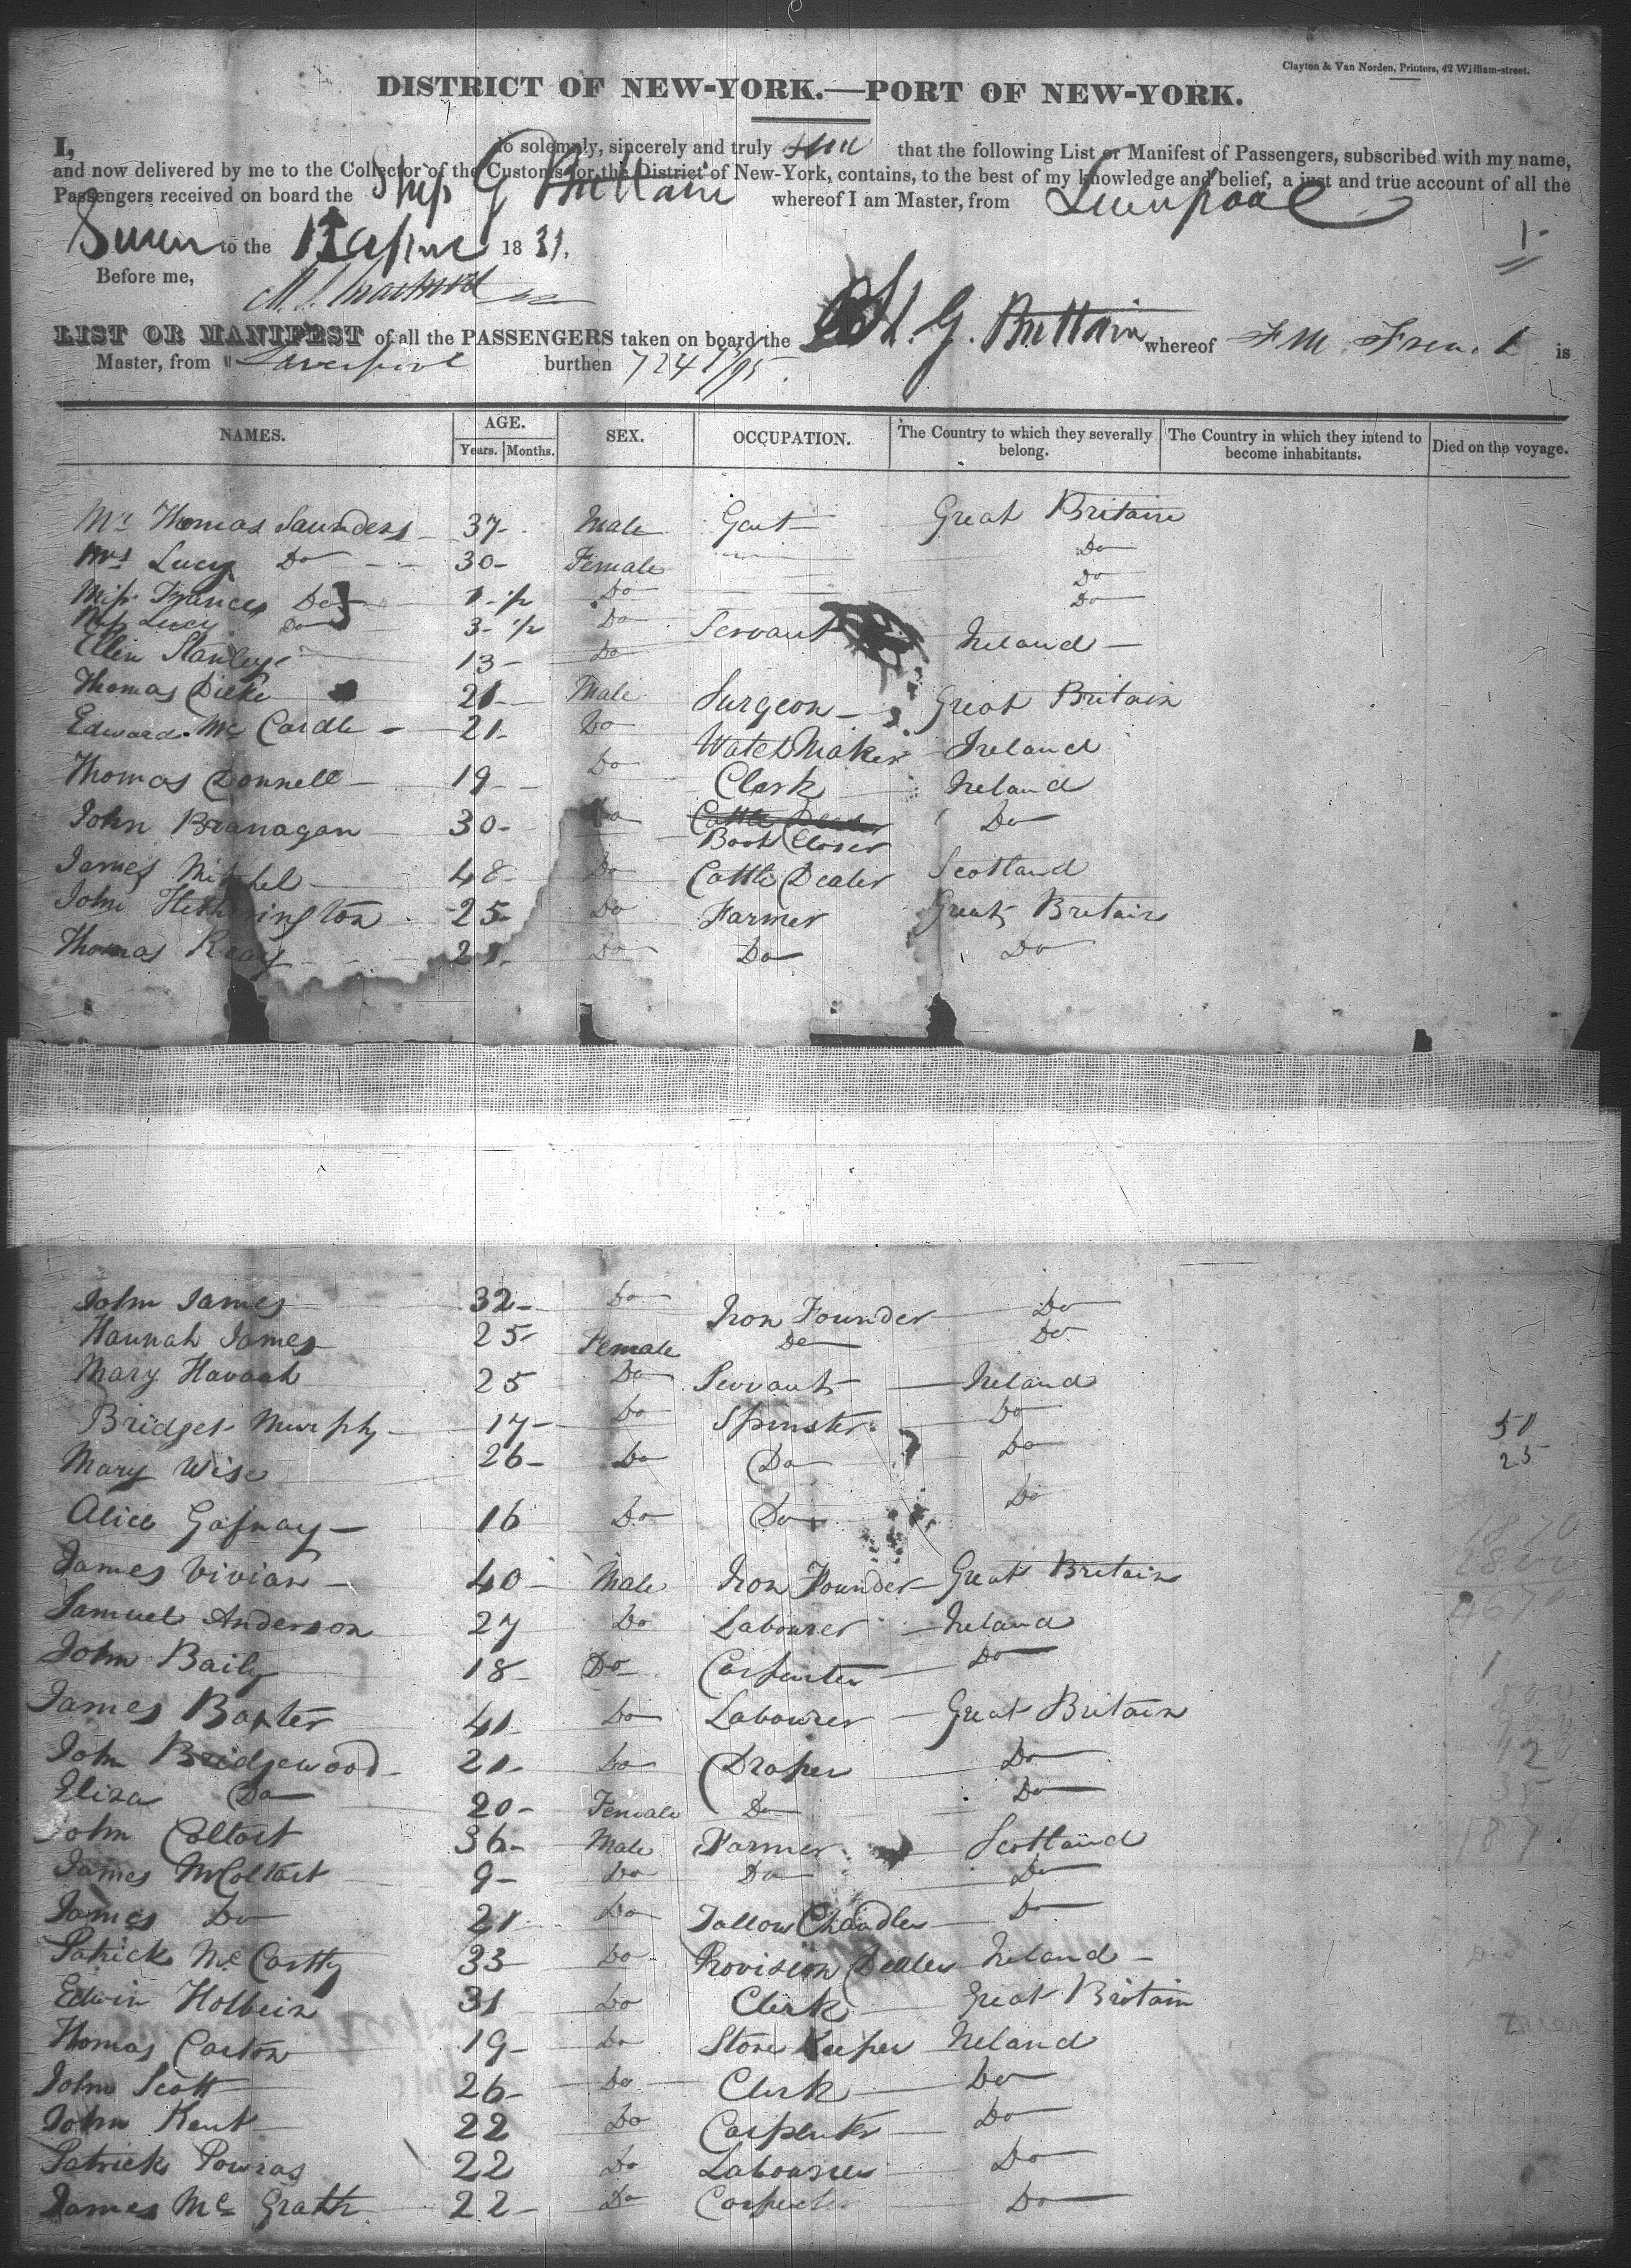 Clayton & Van Norden, Printers, 42 William-street.
DISTRICT OF NEW-YORK.—PORT OF NEW-YORK.
I, do solemnly, sincerely and truly that the following List or Manifest of Passengers, subscribed with my name,
and now delivered by me to the Collector of the Customs for the District of New-York, contains, to the best of my knowledge and belief, a just and true account of all the
Passengers received on board the Ship G Brittain whereof I am Master, from Liverpool
Sworn to the 18 31.
Before me,
LIST OR MANIFEST of all the PASSENGERS taken on board the G. Brittain whereof F M French is
Master, from Liverpool burthen 724
NAMES. AGE. SEX. OCCUPATION. The Country to which they severally belong. The Country in which they intend to become inhabitants. Died on the voyage.
Years. Months.
Mr Thomas Saunders 37 Male Gent Great Britain
Mrs Lucy Do 30 Female Do
Miss Frances Do 1 1/2 Do Do
Miss Lucy Do 3 1/2 Do Do
Ellen Stanley 13 Do Servant Ireland
Thomas Dilke 21 Male Surgeon Great Britain
Edward Mc Cardle 21 Do Watch Maker Ireland
Thomas Donnell 19 Do Clerk Ireland
John Branagan 30 Do Cattle Dealer Boot Closer Do
James Mitchel 48 Do Cattle Dealer Scotland
John Hetherington 25 Do Farmer Great Britain
Thomas Reay 21 Do Do Do
John James 32 Do Iron Founder Do
Hannah James 25 Female Do Do
Mary Havanah 25 Do Servant Ireland
Bridget Murphy 17 Do Spinster Do
Mary Wise 26 Do Do Do
Alice Gafnay 16 Do Do Do
James Vivian 40 Male Iron Founder Great Britain
Samuel Anderson 27 Do Labourer Ireland
John Baily 18 Do Carpenter Do
James Baxter 41 Do Labourer Great Britain
John Bridgewood 21 Do Draper Do
Eliza Do 20 Female Do Do
John Coltart 36 Male Farmer Scotland
James McColtart 9 Do Do Do
James Do 21 Do Tallow Chandler Do
Patrick Mc Cartty 33 Do Provision Dealer Ireland
Edwin Holbein 31 Do Clerk Great Britain
Thomas Carton 19 Do Store Keeper Ireland
John Scott 26 Do Clerk Do
John Kent 22 Do Carpenter Do
Patrick Powras 22 Do Labourer Do
James Mc Grath 22 Do Carpenter Do